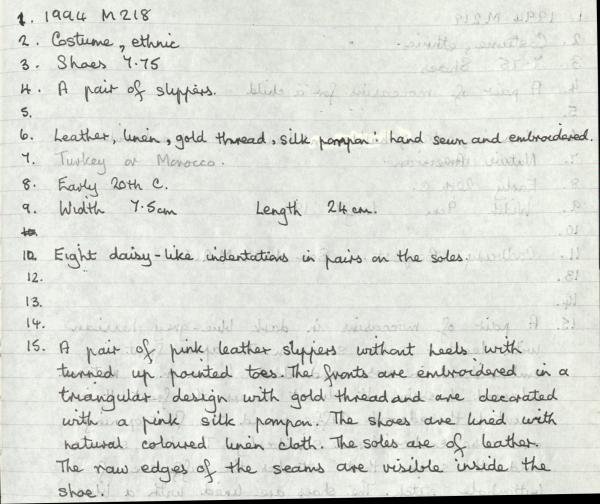 1. 1994 M218
2. Costume, ethnic
3. Shoes 7.75
4. A pair of slippers.
5.
6. Leather, linen, gold thread, silk pompon: hand sewn and embroidered.
7. Turkey or Morocco.
8. Early 20th C.
9. Width 7.5cm Length 24cm.
10. Eight daisy-like indentations in pairs on the soles.
12.
13.
14.
15. A pair of pink leather slippers without heels with
turned up pointed toes. The fronts are embroidered in a
triangular design with gold thread and are decorated
with a pink silk pompon. The shoes are lined with
natural coloured linen cloth. The soles are of leather.
The raw edges of the seams are visible inside the
shoe.